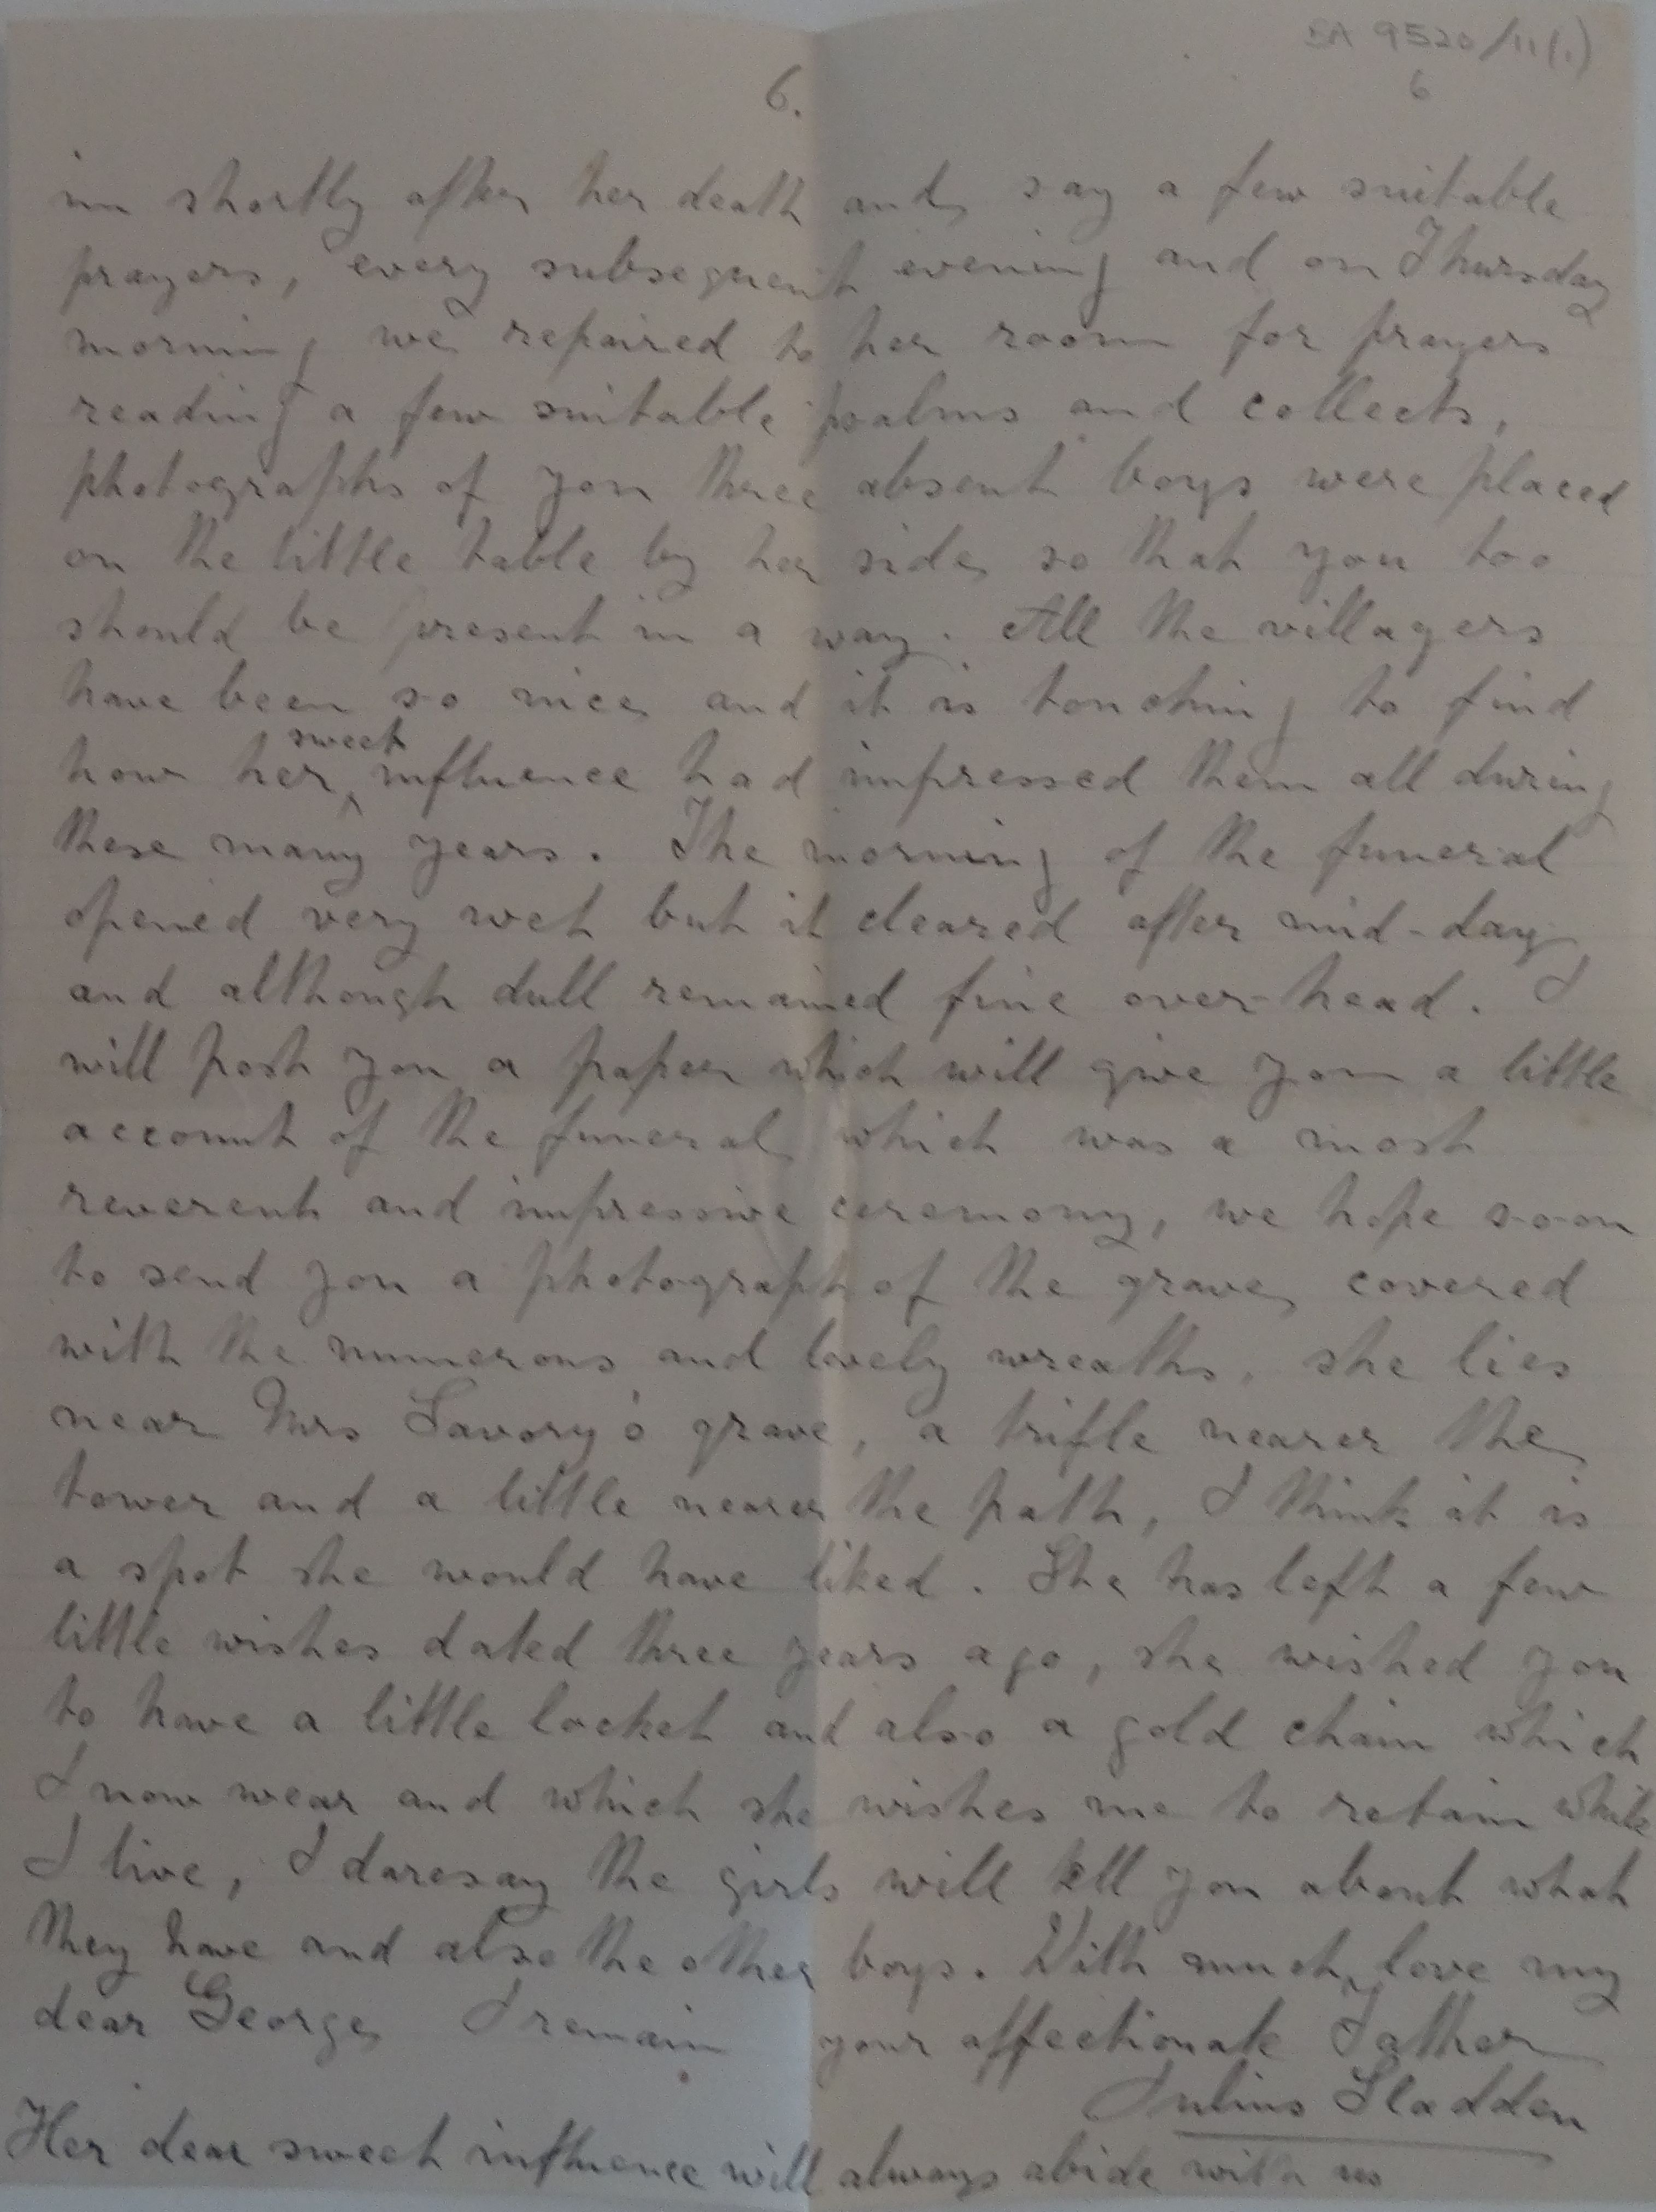 BA 9520/11(1)
6
6.
in shortly after her death and say a few suitable
prayers, every subsequent evening and on Thursday
morning we repaired to her room for prayers
reading a few suitable psalms and collects,
photographs of you three absent boys were placed
on the little table by her side so that you too
should be present in a way. All the villagers
have been so nice and it is touching to find
how her sweet influence had impressed them all during
these many years. The morning of the funeral
opened very wet but it cleared after mid-day
and although dull remained fine over-head. I
will post you a paper which will give you a little
account of the funeral which was a most
reverent and impressive ceremony, we hope soon
to send you a photograph of the grave covered
with the numerous and lovely wreaths, she lies
near Mrs Savory's grave, a trifle nearer the
tower and a little nearer the path, I think it is
a spot she would have liked. She has left a few
little wishes dated three years ago, she wished you
to have a little locket and also a gold chain which
I now wear and which she wishes me to retain while
I live, I daresay the girls will tell you about what
they have and also the other boys. With much love my
dear George I remain your affectionate Father
Julius Sladden
Her dear sweet influence will always abide with us